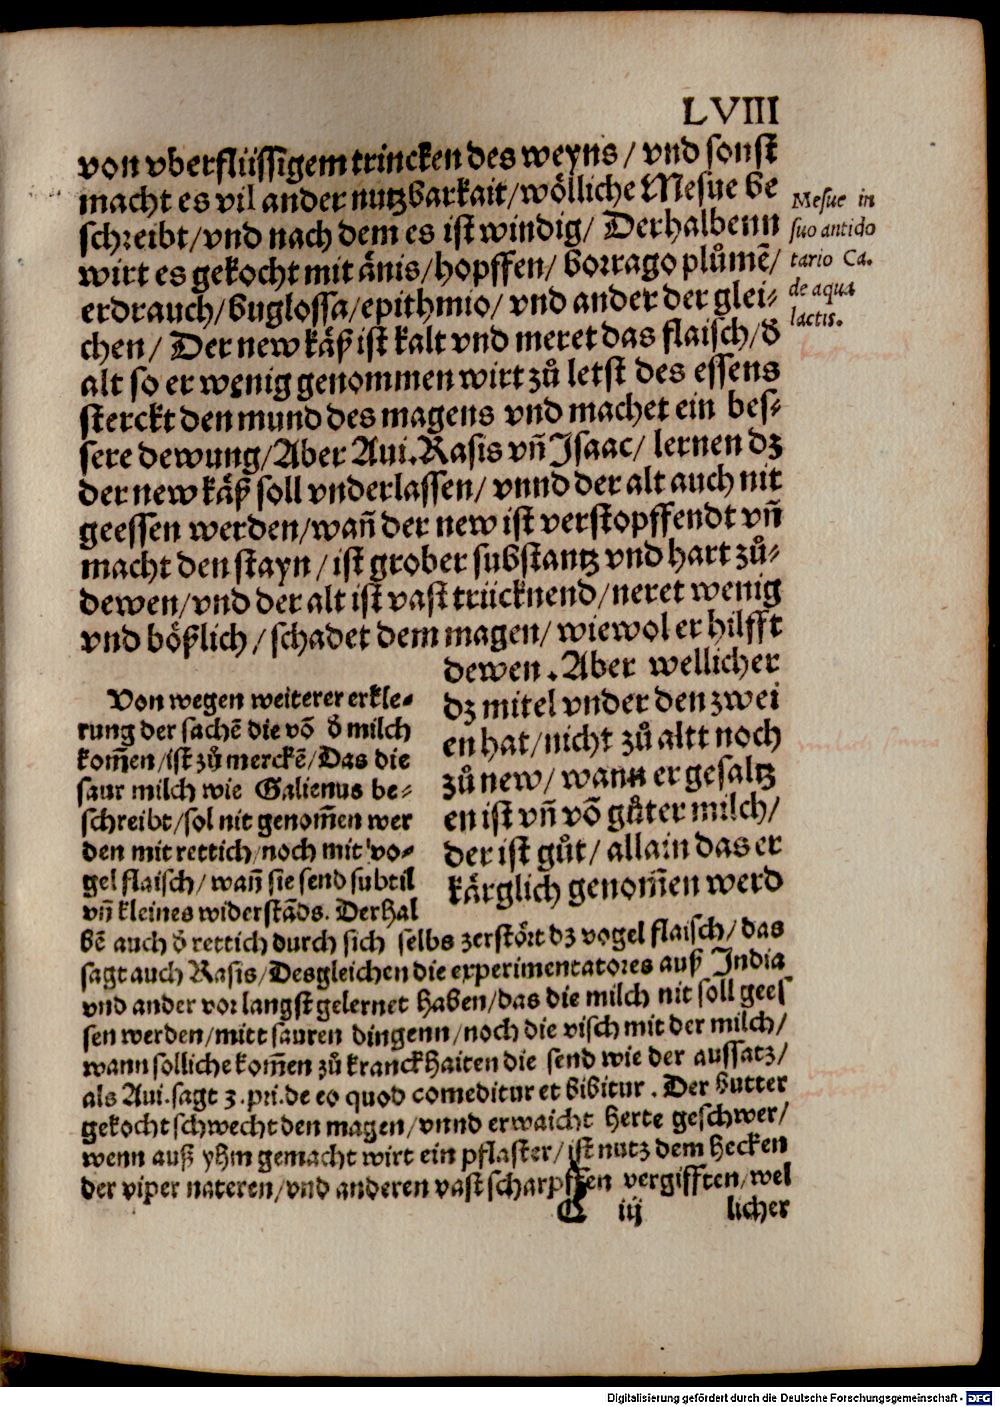 LVIII
von vberflüssigem trincken des weyns / vnd sonst
macht es vil ander nutzbarkait / wölliche Mesue be
schreibt / vnd nach dem es ist windig / Derhalbenn
wirt es gekocht mit änis / hopffen / borrago plůmē /
erdrauch / buglossa / epithmio / vnd ander der glei⸗
chen / Der new käß ist kalt vnd meret das flaisch / d̄
alt so er wenig genommen wirt zů letst des essens
sterckt den mund des magens vnd machet ein bes⸗
sere dewung / Aber Aui. Rasis vñ Isaac / lernen dz
der new käß soll vnderlassen / vnnd der alt auch nit
geessen werden / wañ der new ist verstopffendt vñ
macht den stayn / ist grober substantz vnd hart zů⸗
dewen / vnd der alt ist vast trücknend / neret wenig
vnd bößlich / schadet dem magen / wiewol er hilfft
dewen . Aber wellicher
dz mitel vnder den zwei
en hat / nicht zů altt noch
zů new / wann er gesaltz
en ist vñ vō gůter milch /
der ist gůt / allain das er
kärglich genom̄en werd
Mesue in
suo antido
tario Ca.
de aqua
lactis.
Von wegen weiterer erkle⸗
rung der sachē die vō d̄ milch
kom̄en / ist zů merckē / Das die
saur milch wie Galienus be⸗
schreibt / sol nit genom̄en wer
den mit rettich / noch mit vo⸗
gel flaisch / wañ sie send subtil
vñ kleines widerstāds. Derhal
bē auch d̄ rettich durch sich selbs zerstört dz vogel flaisch / das
sagt auch Rasis / Desgleichen die experimentatores auß India
vnd ander vor langst gelernet haben / das die milch nit soll gees
sen werden / mitt sauren dingenn / noch die visch mit der milch /
wann solliche kom̄en zů kranckhaiten die send wie der aussatz /
als Aui. sagt 3. pri. de eo quod comeditur et bibitur . Der butter
gekocht schwecht den magen / vnnd erwaicht herte geschwer /
wenn auß yhm gemacht wirt ein pflaster / ist nutz dem hecken
der viper nateren / vnd anderen vast scharpffen vergifften / wel
G iij licher
Digitalisierung gefördert durch die Deutsche Forschungsgemeinschaft - DFG